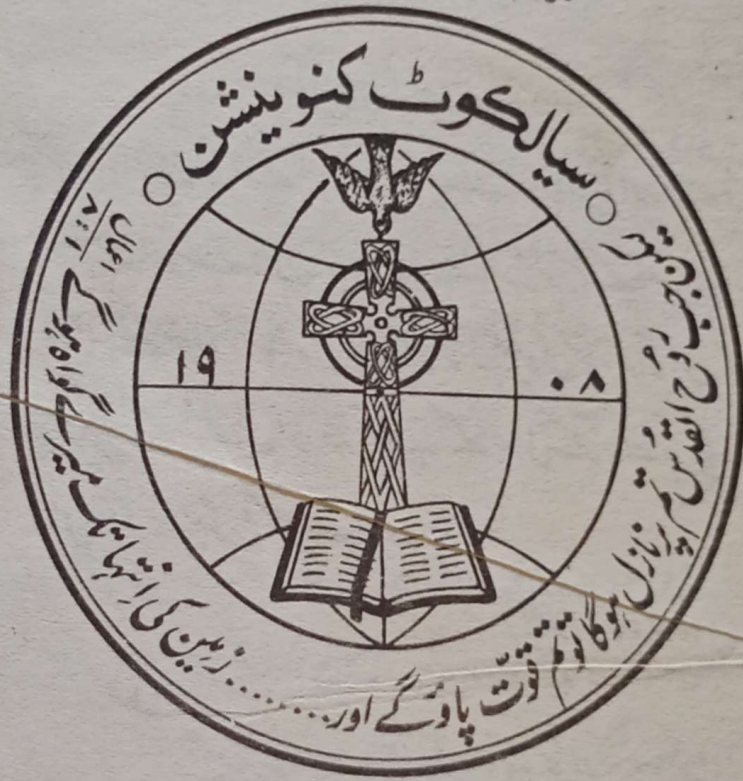 سیالکوٹ کنوینشن
لیکن جب رُوح القدُس تم پر نازل ہوگا تو تم قوّت پاؤگے اور........زمین کی انتہا تک میرے گواہ ہوگے
اعمال ۱:۸
۱۹۰۸